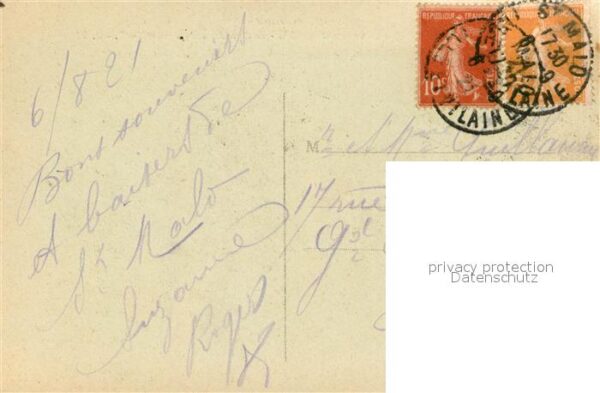 6/8 21
Bons souvenirs
& baisers de
St Malo
Suzanne
Roger
RÉPUBLIQUE FRANÇAISE
10c
ST MALO
17 30
VILAINE
M
r & Mme Guillaume
17 rue
Gal
privacy protection
Datenschutz